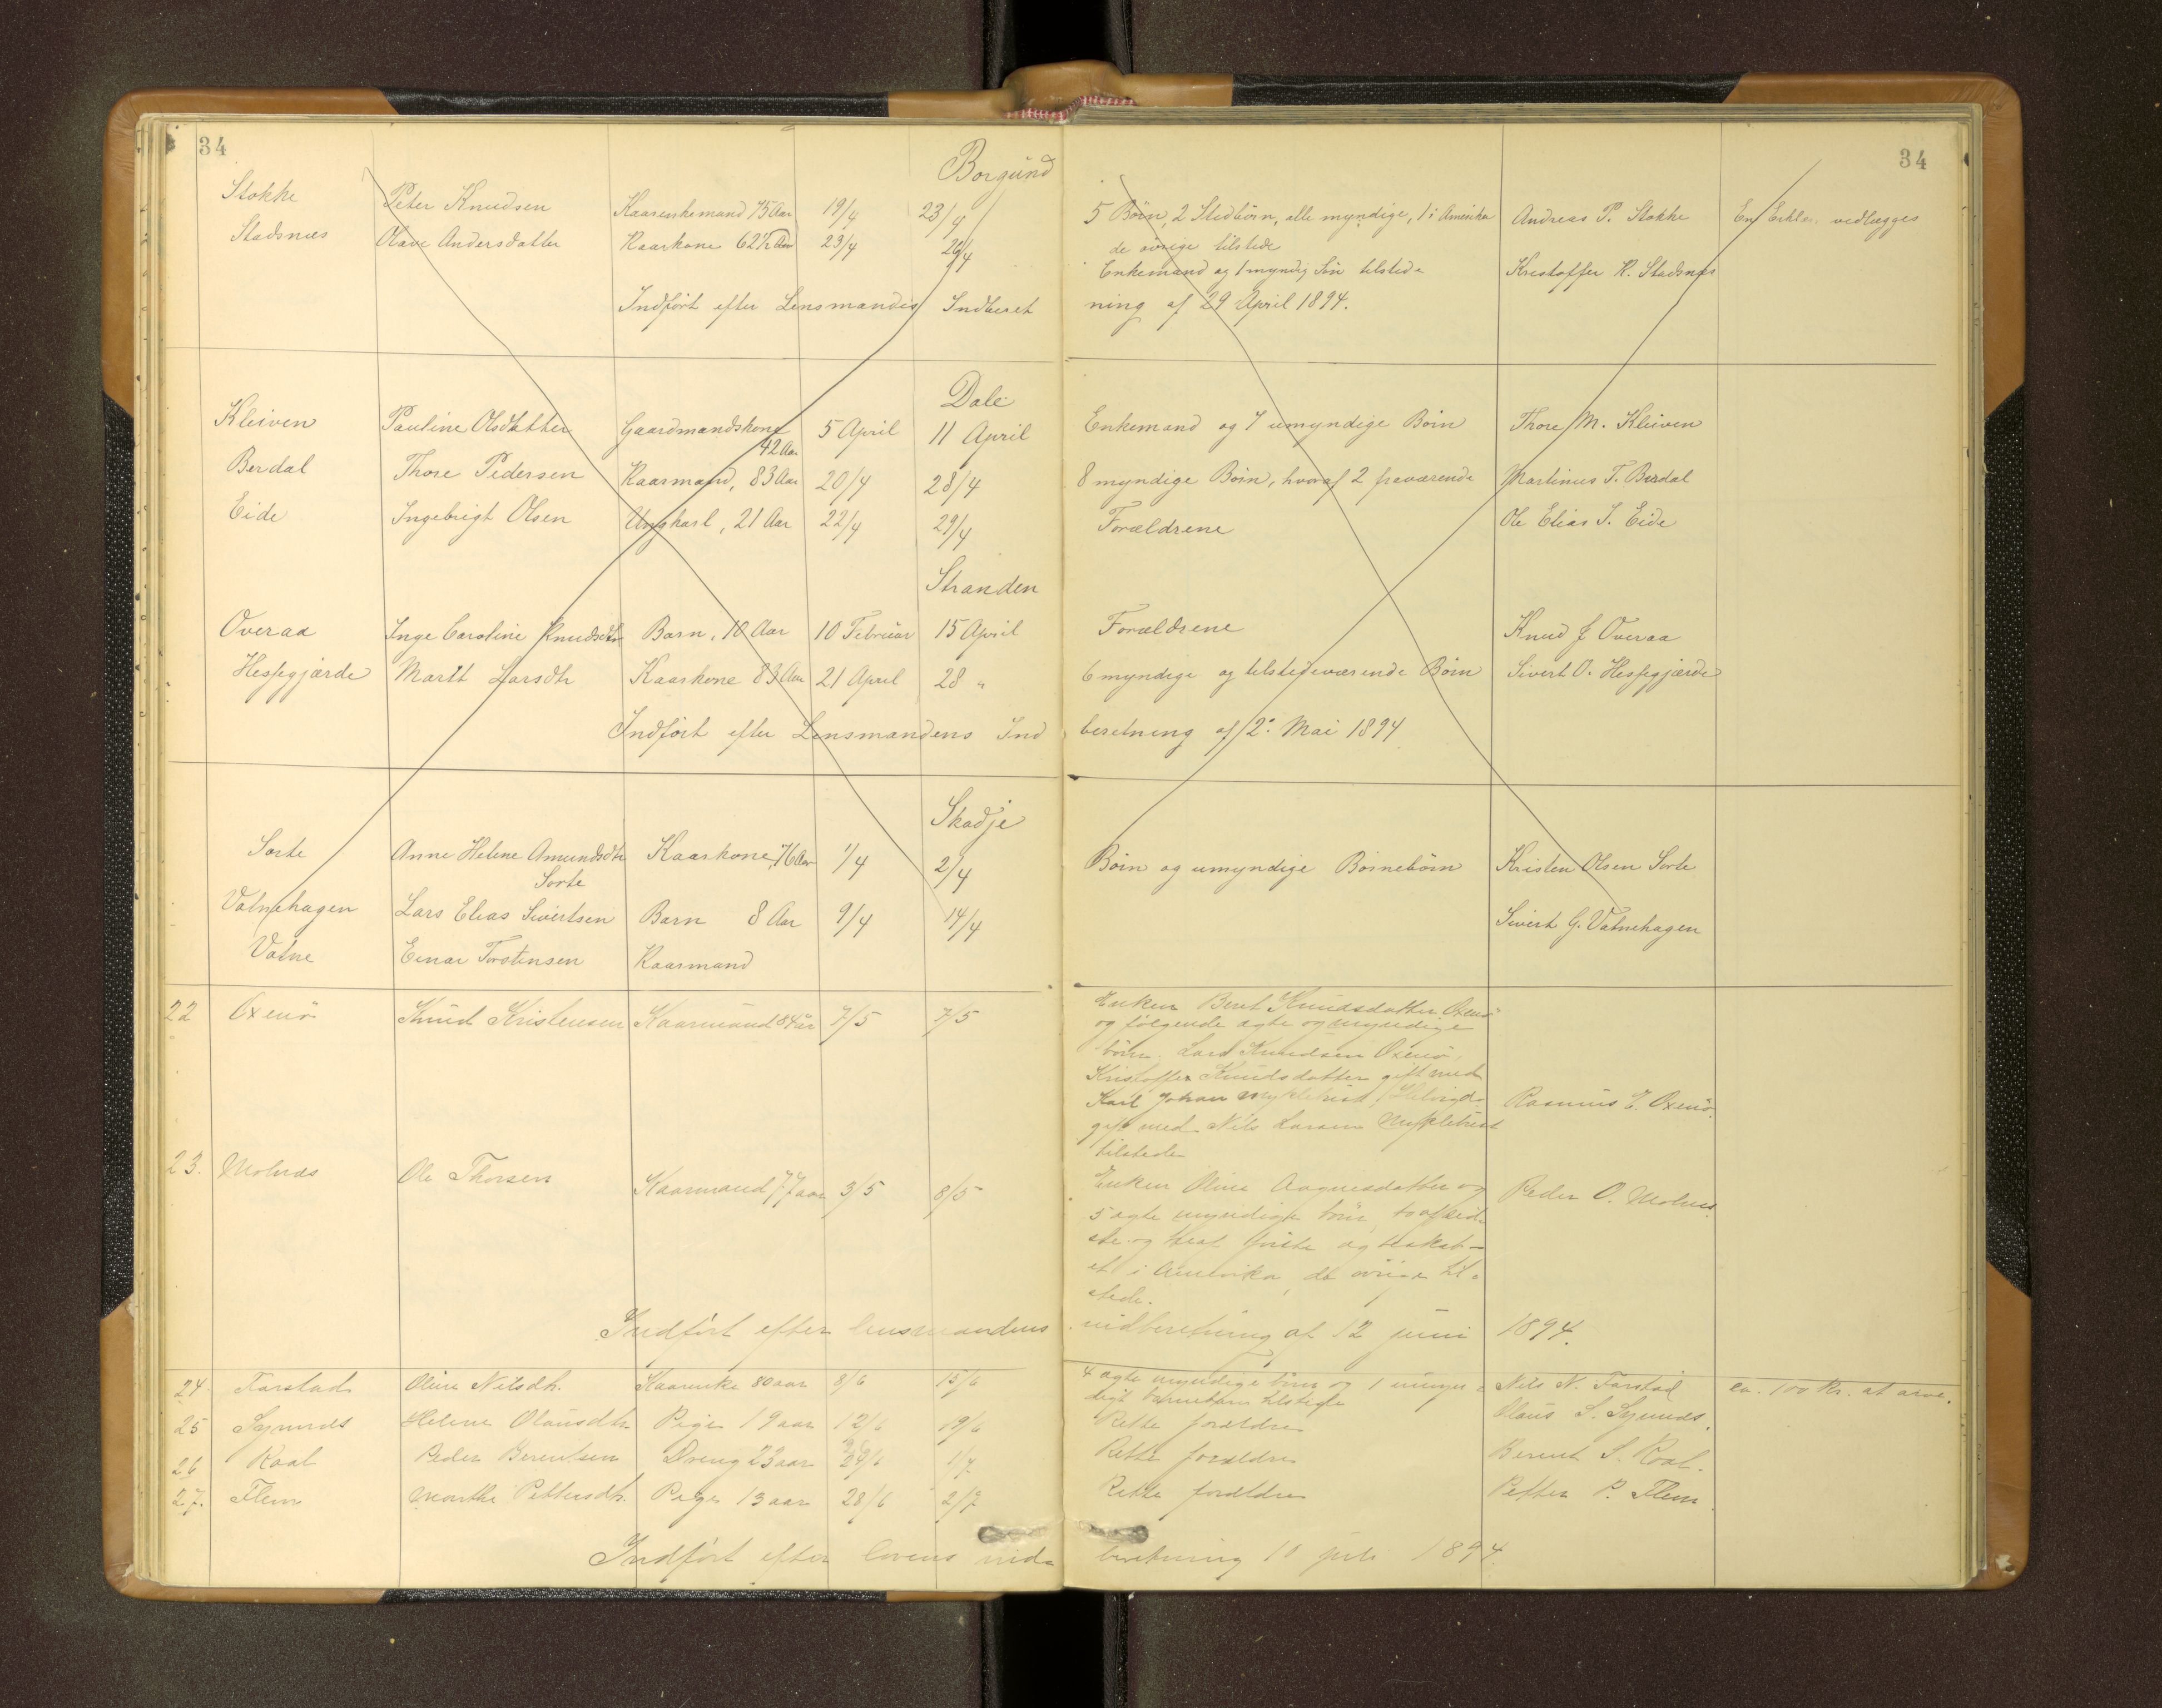 34
34
Borgund
Stokke Peter Knudsen Kaarenkemand 75 Aar 19/4 23/4 5 Börn, 2 Stedbörn, alle myndige, 1 i Amerika Andreas P. Stokke En Erklær. vedlægges
de øvrige tilstede
Stadsnæs Olave Andersdatter Kaarkone 62½ Aar 23/4 26/4 Enkemand og 1 myndig Sön tilstede Kristoffer K. Stadsnes
Indført efter Lensmandens Indberet ning af 29 April 1894.
Dale
Kleiven Pauline Olsdatter Gaardmandskone 42 Aar 5 April 11 April Enkemand og 7 umyndige Börn Thore M. Kleiven
Berdal Thore Pedersen Kaarmand, 83 Aar 20/4 28/4 8 myndige Börn, hvoraf 2 fraværende Martinus T. Berdal
Eide Ingebrigt Olsen Ungkarl, 21 Aar 22/4 29/4 Forældrene Ole Elias I. Eide
Stranden
Overaa Inge Caroline Knudsdtr Barn, 10 Aar 10 Februar 15 April Forældrene Knud J Overaa
Hessegjærde Martt Larsdtr Kaarkone 83 Aar 21 April 28 " 6 myndige og tilstedeværende Börn Sivert O. Hessegjærde
Indført efter Lensmandens Ind beretning af 2. Mai 1894
Skodje
Sorte Anne Helene Amundsdtr Kaarkone, 76 Aar 1/4 2/4 Börn og umyndige Börnebörn Kristen Olsen Sorte
Sorte
Vatnehagen Lars Elias Sivertsen Barn 8 Aar 9/4 14/4 Sivert G. Vatnehagen
Vatne Einar Torstensen Kaarmand
22 Oxenö Knud Kristensen Kaarmand 84 aar 7/5 7/5 Enken Beret Knudsdatter Oxenö
og følgende ægte og myndige
börn: Lars Knudsen Oxenö,
Kristoffer Knudsdatter gift med
Karl Johan Myklebust,
gift med Nils Larsen Myklebust Rasmus E. Oxenö.
tilstede
23. Molnæs Ole Thorsen Kaarmand 77 aar 3/5 8/5 Enken Oline Aagnesdatter og Peder O. Molnes.
5 ægte myndige börn,
i Amerika, de øvrige til-
stede.
Indført efter lensmandens indberetning af 12 juni 1894.
24. Farstad Oline Nilsdtr. Kaarenke 80 aar 8/6 15/6 4 ægte myndige börn og 1 umyn- Nils N. Farstad ca. 100 Kr. at arve.
digt barnebarn tilstede
25 Synnes Helene Olausdtr Pige 19 aar 12/6 19/6 Rette forældre Olaus S. Synnes.
26 Roal Peder Berentsen Dreng 23 aar 1/7 Rette forældre Berent S. Roal.
27. Flem Marthe Pettersdtr. Pige 13 aar 28/6 2/7 Rette forældre Petter P. Flem.
Indført efter lovens ind- beretning 10 juli 1894.